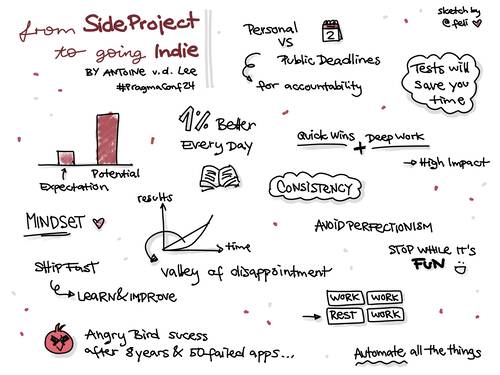 from SideProject
to going Indie
BY ANTOINE v.d. LEE
#PragmaConf24
Personal
VS
2
Public Deadlines
for accountability
sketch by
@feli
Tests will
save you
time
1% Better
Every Day
Quick Wins + Deep Work
→ High Impact
Expectation
Potential
CONSISTENCY
MINDSET
results
time
valley of disappointment
AVOID PERFECTIONISM
STOP WHILE IT'S
FUN
SHIP FAST
LEARN & IMPROVE
WORK WORK
REST WORK
Angry Bird sucess
after 8 years & 50 failed apps...
Automate all the things